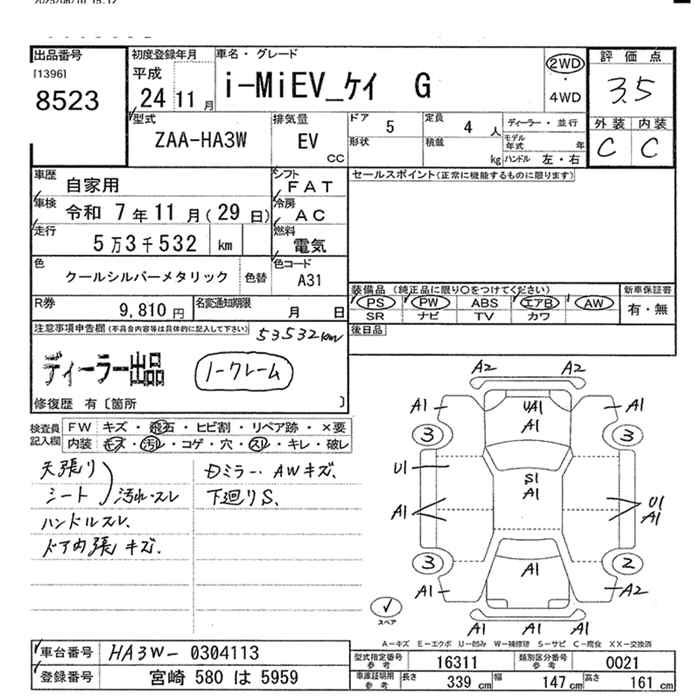 出品番号
[1396]
8523
初度登録年月
平成
24 11 月
車名・グレード
i-MiEV_ケイ G
2WD
・
4WD
評価点
3.5
外装 内装
C C
型式
ZAA-HA3W
排気量
EV
CC
ドア
5
形状
定員
4 人
積載
kg
ディーラー・並行
モデル年式 年
ハンドル 左・右
車歴
自家用
シフト
FAT
車検
令和 7年11月(29日)
冷房
AC
走行
5万3千532 km
燃料
電気
色
クールシルバーメタリック
色替
色コード
A31
R券
9,810 円
名変通知期限
月 日
セールスポイント(正常に機能するものに限ります)
装備品(純正品に限り○をつけてください)
PS PW ABS エアB AW
SR ナビ TV カワ
新車保証書
有・無
後日品
注意事項申告欄(不具合内容等は具体的に記入して下さい)
53532km
ディーラー出品
ノークレーム
修復歴 有〔箇所 〕
検査員
記入欄
FW キズ・飛石・ヒビ割・リペア跡・×要
内装 キズ・汚レ・コゲ・穴・スレ・キレ・破レ
天張り
シート
汚れ・スレ
ハンドルスレ、
ドア内張キズ、
Dミラー・AWキズ、
下廻りS、
A2 A2
A1 UA1 A1
A1
3 3
U1 S1
A1
A1 U1
A1
3 2
A1 A1 A2
A1 A1
スペア
A-キズ E-エクボ U-凹み W-補修跡 S-サビ C-腐食 XX-交換済
車台番号
HA3W-0304113
登録番号
宮崎 580 は 5959
型式指定番号
参考
16311
類別区分番号
参考
0021
車庫証明用
参考
長さ 339 cm 幅 147 cm 高さ 161 cm